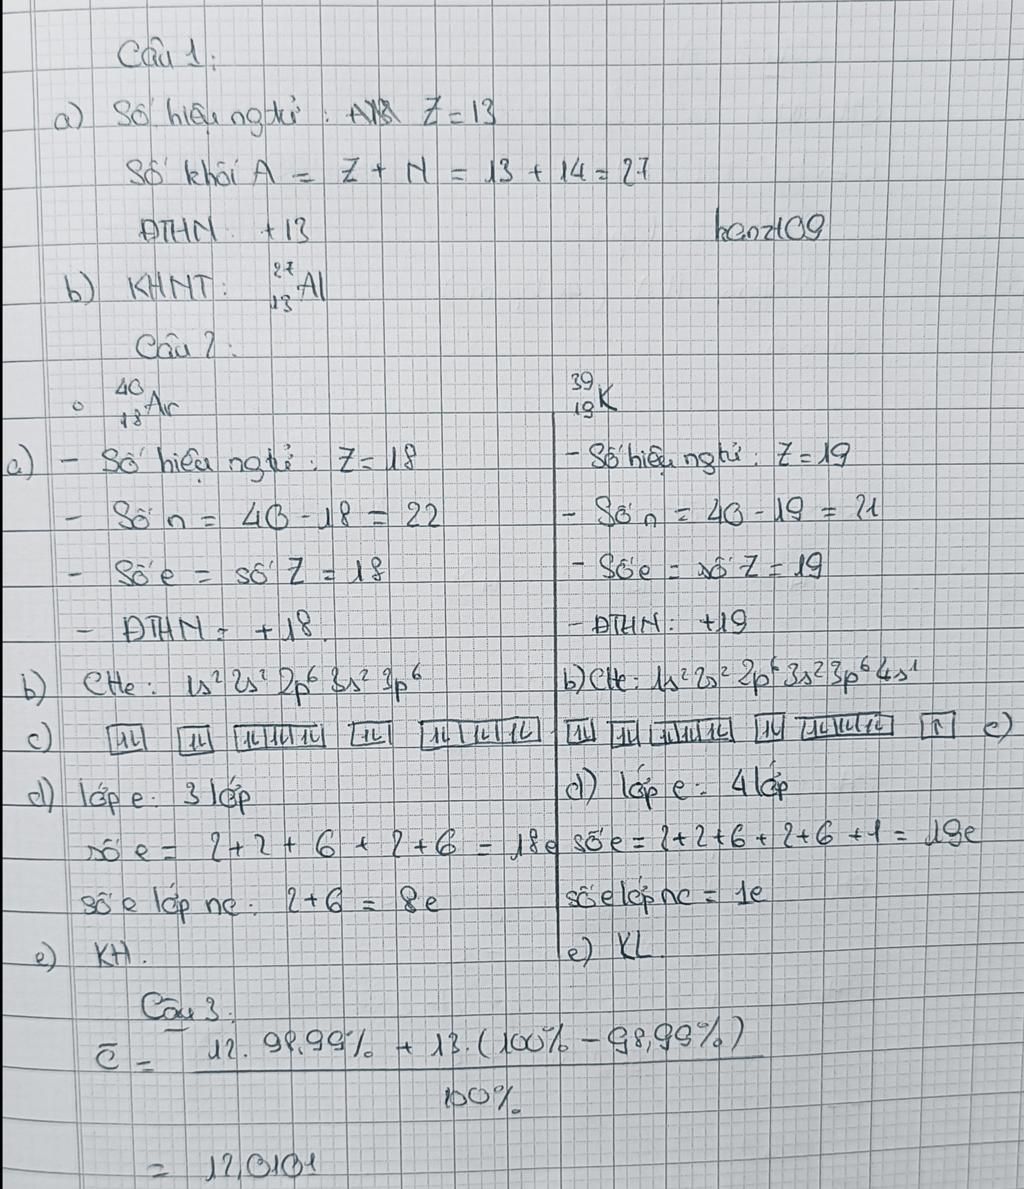 Câu 1:
a) Số hiệu ngtử: Z = 13
Số khối A = Z + N = 13 + 14 = 27
ĐTHN: +13
hanzl09
b) KHNT: ²⁷₁₃Al
Câu 2:
⁴⁰₁₈Ar
³⁹₁₉K
a) - Số hiệu ngtử: Z = 18
- Số n = 40 - 18 = 22
- Số e = số Z = 18
- ĐTHN = +18.
b) CHe: 1s² 2s² 2p⁶ 3s² 3p⁶
c) ↑↓ ↑↓ ↑↓ ↑↓ ↑↓ ↑↓ ↑↓ ↑↓ ↑↓
d) lớp e: 3 lớp
số e = 2+2+6+2+6 = 18e
số e lớp nc: 2+6 = 8e
e) KH.
- Số hiệu ngtử: Z = 19
- Số n = 40 - 19 = 21
- Số e = số Z = 19
- ĐTHN: +19
b) CHe: 1s² 2s² 2p⁶ 3s² 3p⁶ 4s¹
↑↓ ↑↓ ↑↓ ↑↓ ↑↓ ↑↓ ↑↓ ↑↓ ↑↓ ↑ c)
d) lớp e: 4 lớp
số e = 2+2+6+2+6+1 = 19e
số e lớp nc = 1e
e) KL.
Câu 3:
C̄ = 12. 98,99% + 13. (100% - 98,99%)
100%
= 12,0101